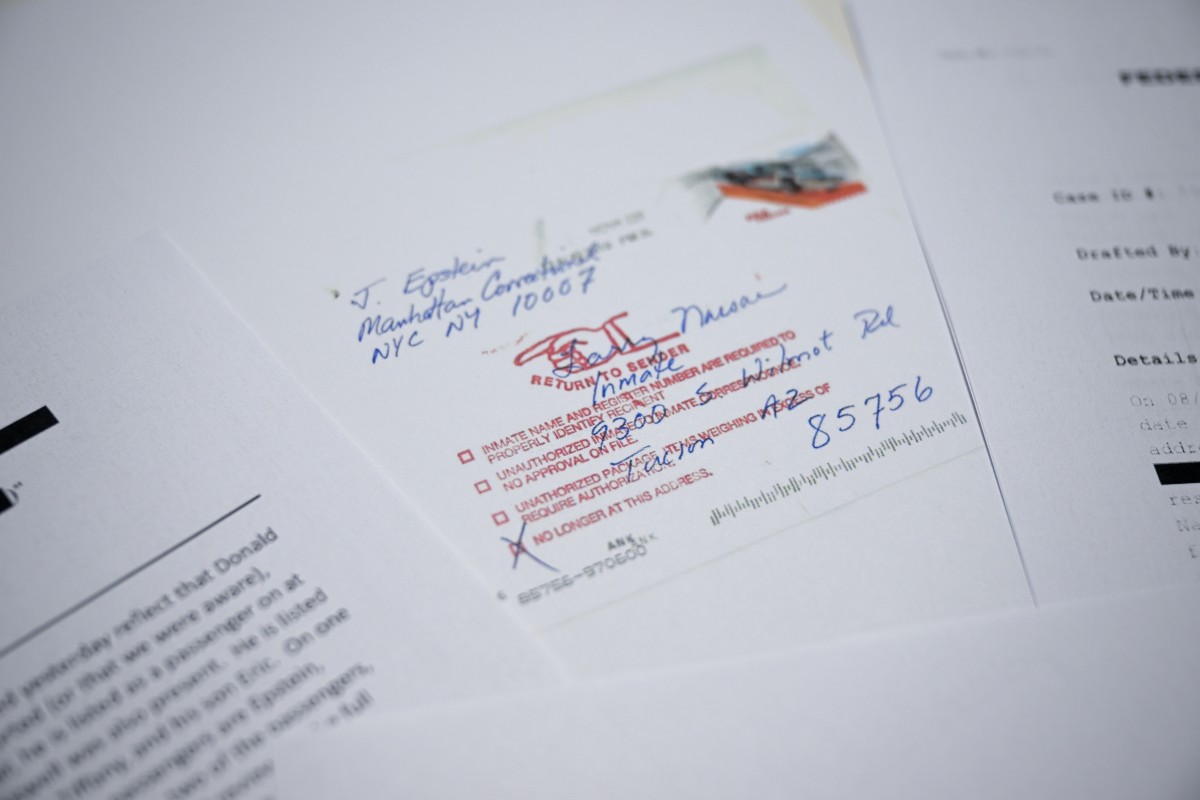 J. Epstein
Manhattan Correctional
NYC NY 10007
Larry Nassar
Inmate
9300 S Wilmot Rd
Tucson AZ
85756
RETURN TO SENDER
INMATE NAME AND REGISTER NUMBER ARE REQUIRED TO
PROPERLY IDENTIFY RECIPIENT
UNAUTHORIZED INMATE TO INMATE CORRESPONDENCE.
NO APPROVAL ON FILE.
UNATHORIZED PACKAGE. ITEMS WEIGHING IN EXCESS OF
REQUIRE AUTHORIZATION.
X NO LONGER AT THIS ADDRESS.
ANK
85756-970600
yesterday reflect that Donald
(or that we were aware),
he is listed as a passenger on at
was also present. He is listed
Tiffany, and his son Eric. On one
passengers are Epstein,
of the passengers,
full
Case ID #:
Drafted By
Date/Time
Details
On 08/
date
addr